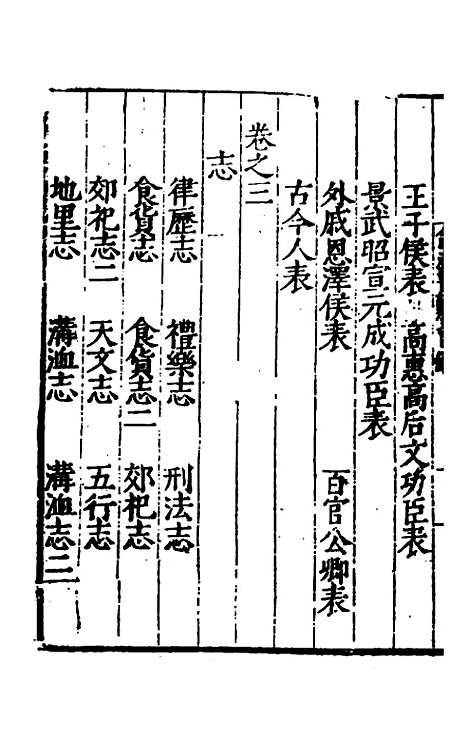 王子侯表　高惠高后文功臣表
景武昭宣元成功臣表
外戚恩澤侯表　百官公卿表
古今人表
卷之三
志
律歷志　禮樂志　刑法志
食貨志　食貨志二　郊祀志
郊祀志二　天文志　五行志
地里志　溝洫志　溝洫志二